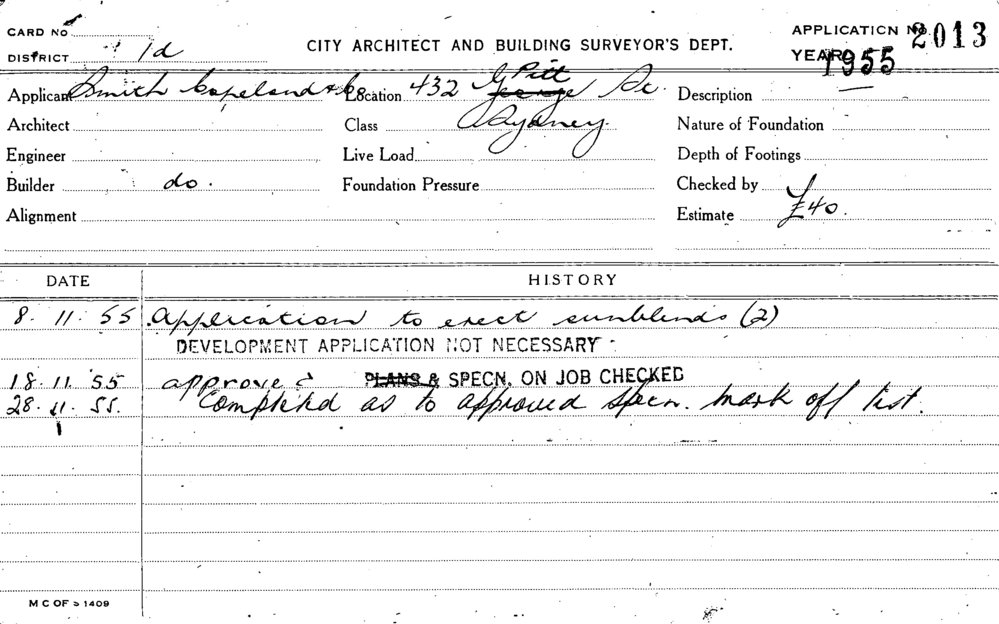 CARD No
APPLICATION No. 2013
DISTRICT 1d
CITY ARCHITECT AND BUILDING SURVEYOR'S DEPT.
YEAR 1955
Applicant Smith Copeland & Co Location 432 George Pitt St. Description —
Architect Class Sydney. Nature of Foundation
Engineer Live Load Depth of Footings
Builder do. Foundation Pressure Checked by
Alignment Estimate £40.
DATE HISTORY
8. 11. 55 Application to erect sunblinds (2)
DEVELOPMENT APPLICATION NOT NECESSARY
18. 11. 55 approved PLANS & SPECN. ON JOB CHECKED
28. 11. 55. Completed as to approved specn. mark off list.
M C OF S 1409